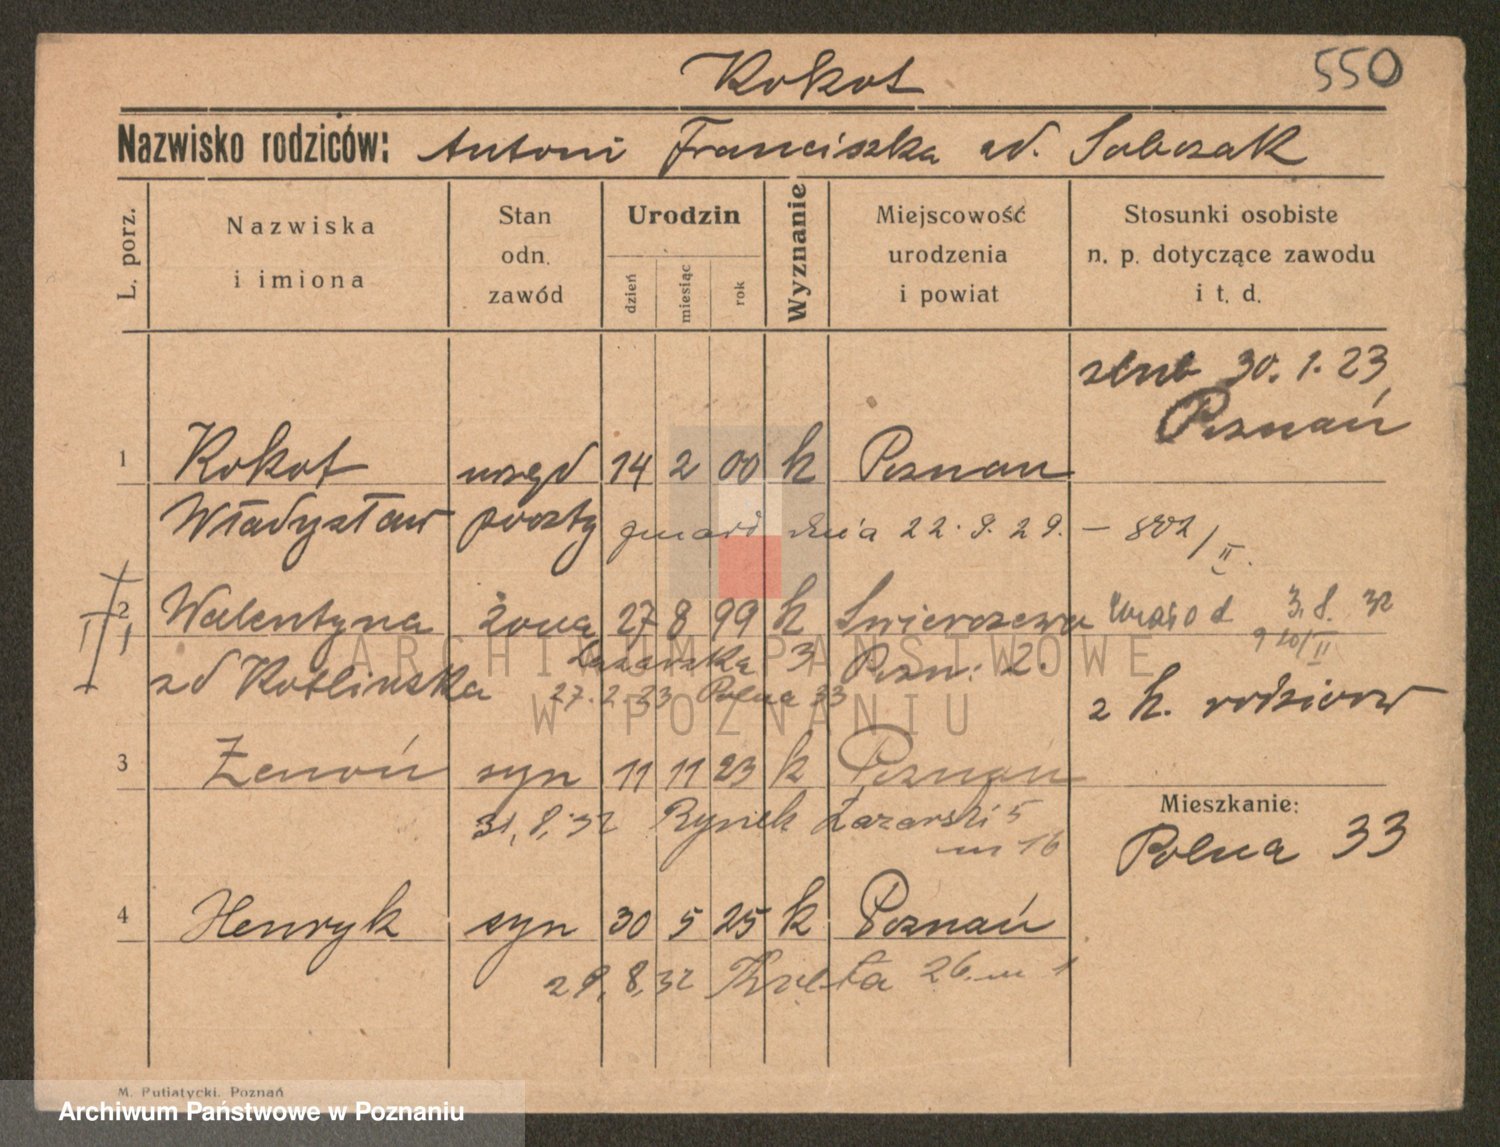 Kokot
550
Nazwisko rodziców: Antoni Franciszka zd. Sobczak
L. porz.
Nazwiska i imiona
Stan odn. zawód
Urodzin
dzień
miesiąc
rok
Wyznanie
Miejscowość urodzenia i powiat
Stosunki osobiste n. p. dotyczące zawodu i t. d.
ślub 30. 1. 23
Poznań
1 Kokot urzęd 14 2 00 k Poznań
Władysław poczty zmarł dnia 22. 9. 29. — 802/II.
2 Walentyna żona 27 8 99 k Świerczewo 3. 8. 32
9 10/II
Łazarska 3 Pozn: 2.
zd Kotlińska 27. 2. 23 Polna 33
z k. rodziców
3 Zenon syn 11 11 23 k Poznań
Mieszkanie:
31, 8, 32 Rynek Łazarski 5
m 16
Polna 33
4 Henryk syn 30 5 25 k Poznań
29, 8, 32 26. m 1
M. Putiatycki. Poznań
ARCHIWUM PAŃSTWOWE
W POZNANIU
Archiwum Państwowe w Poznaniu